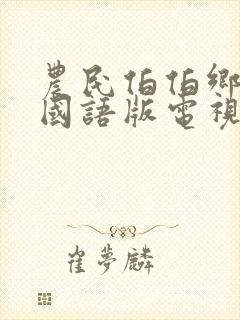 農民伯伯鄉
國語版電視
崔夢麟